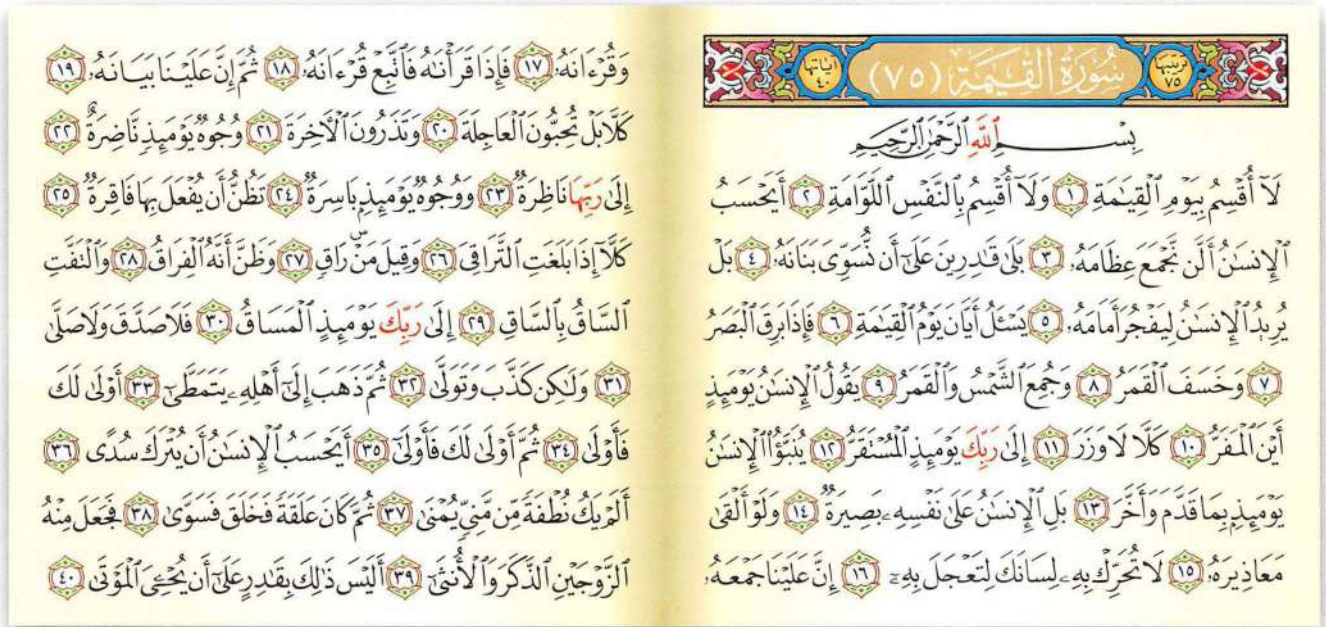 ترتيبها ٧٥ سُورَةُ الْقِيٰمَةِ (٧٥) اياتها ٤٠
بِسْمِ ٱللَّهِ ٱلرَّحْمَٰنِ ٱلرَّحِيمِ
لَآ أُقْسِمُ بِيَوْمِ ٱلْقِيَٰمَةِ ١ وَلَآ أُقْسِمُ بِٱلنَّفْسِ ٱللَّوَّامَةِ ٢ أَيَحْسَبُ
ٱلْإِنسَٰنُ أَلَّن نَّجْمَعَ عِظَامَهُۥ ٣ بَلَىٰ قَٰدِرِينَ عَلَىٰٓ أَن نُّسَوِّىَ بَنَانَهُۥ ٤ بَلْ
يُرِيدُ ٱلْإِنسَٰنُ لِيَفْجُرَ أَمَامَهُۥ ٥ يَسْـَٔلُ أَيَّانَ يَوْمُ ٱلْقِيَٰمَةِ ٦ فَإِذَا بَرِقَ ٱلْبَصَرُ
٧ وَخَسَفَ ٱلْقَمَرُ ٨ وَجُمِعَ ٱلشَّمْسُ وَٱلْقَمَرُ ٩ يَقُولُ ٱلْإِنسَٰنُ يَوْمَئِذٍ
أَيْنَ ٱلْمَفَرُّ ١٠ كَلَّا لَا وَزَرَ ١١ إِلَىٰ رَبِّكَ يَوْمَئِذٍ ٱلْمُسْتَقَرُّ ١٢ يُنَبَّؤُا۟ ٱلْإِنسَٰنُ
يَوْمَئِذٍۭ بِمَا قَدَّمَ وَأَخَّرَ ١٣ بَلِ ٱلْإِنسَٰنُ عَلَىٰ نَفْسِهِۦ بَصِيرَةٌ ١٤ وَلَوْ أَلْقَىٰ
مَعَاذِيرَهُۥ ١٥ لَا تُحَرِّكْ بِهِۦ لِسَانَكَ لِتَعْجَلَ بِهِۦٓ ١٦ إِنَّ عَلَيْنَا جَمْعَهُۥ
وَقُرْءَانَهُۥ ١٧ فَإِذَا قَرَأْنَٰهُ فَٱتَّبِعْ قُرْءَانَهُۥ ١٨ ثُمَّ إِنَّ عَلَيْنَا بَيَانَهُۥ ١٩
كَلَّا بَلْ تُحِبُّونَ ٱلْعَاجِلَةَ ٢٠ وَتَذَرُونَ ٱلْءَاخِرَةَ ٢١ وُجُوهٌ يَوْمَئِذٍ نَّاضِرَةٌ ٢٢
إِلَىٰ رَبِّهَا نَاظِرَةٌ ٢٣ وَوُجُوهٌ يَوْمَئِذٍۭ بَاسِرَةٌ ٢٤ تَظُنُّ أَن يُفْعَلَ بِهَا فَاقِرَةٌ ٢٥
كَلَّآ إِذَا بَلَغَتِ ٱلتَّرَاقِىَ ٢٦ وَقِيلَ مَنْ ۜ رَاقٍ ٢٧ وَظَنَّ أَنَّهُ ٱلْفِرَاقُ ٢٨ وَٱلْتَفَّتِ
ٱلسَّاقُ بِٱلسَّاقِ ٢٩ إِلَىٰ رَبِّكَ يَوْمَئِذٍ ٱلْمَسَاقُ ٣٠ فَلَا صَدَّقَ وَلَا صَلَّىٰ
٣١ وَلَٰكِن كَذَّبَ وَتَوَلَّىٰ ٣٢ ثُمَّ ذَهَبَ إِلَىٰٓ أَهْلِهِۦ يَتَمَطَّىٰٓ ٣٣ أَوْلَىٰ لَكَ
فَأَوْلَىٰ ٣٤ ثُمَّ أَوْلَىٰ لَكَ فَأَوْلَىٰٓ ٣٥ أَيَحْسَبُ ٱلْإِنسَٰنُ أَن يُتْرَكَ سُدًى ٣٦
أَلَمْ يَكُ نُطْفَةً مِّن مَّنِىٍّ يُمْنَىٰ ٣٧ ثُمَّ كَانَ عَلَقَةً فَخَلَقَ فَسَوَّىٰ ٣٨ فَجَعَلَ مِنْهُ
ٱلزَّوْجَيْنِ ٱلذَّكَرَ وَٱلْأُنثَىٰٓ ٣٩ أَلَيْسَ ذَٰلِكَ بِقَٰدِرٍ عَلَىٰٓ أَن يُحْۦِىَ ٱلْمَوْتَىٰ ٤٠